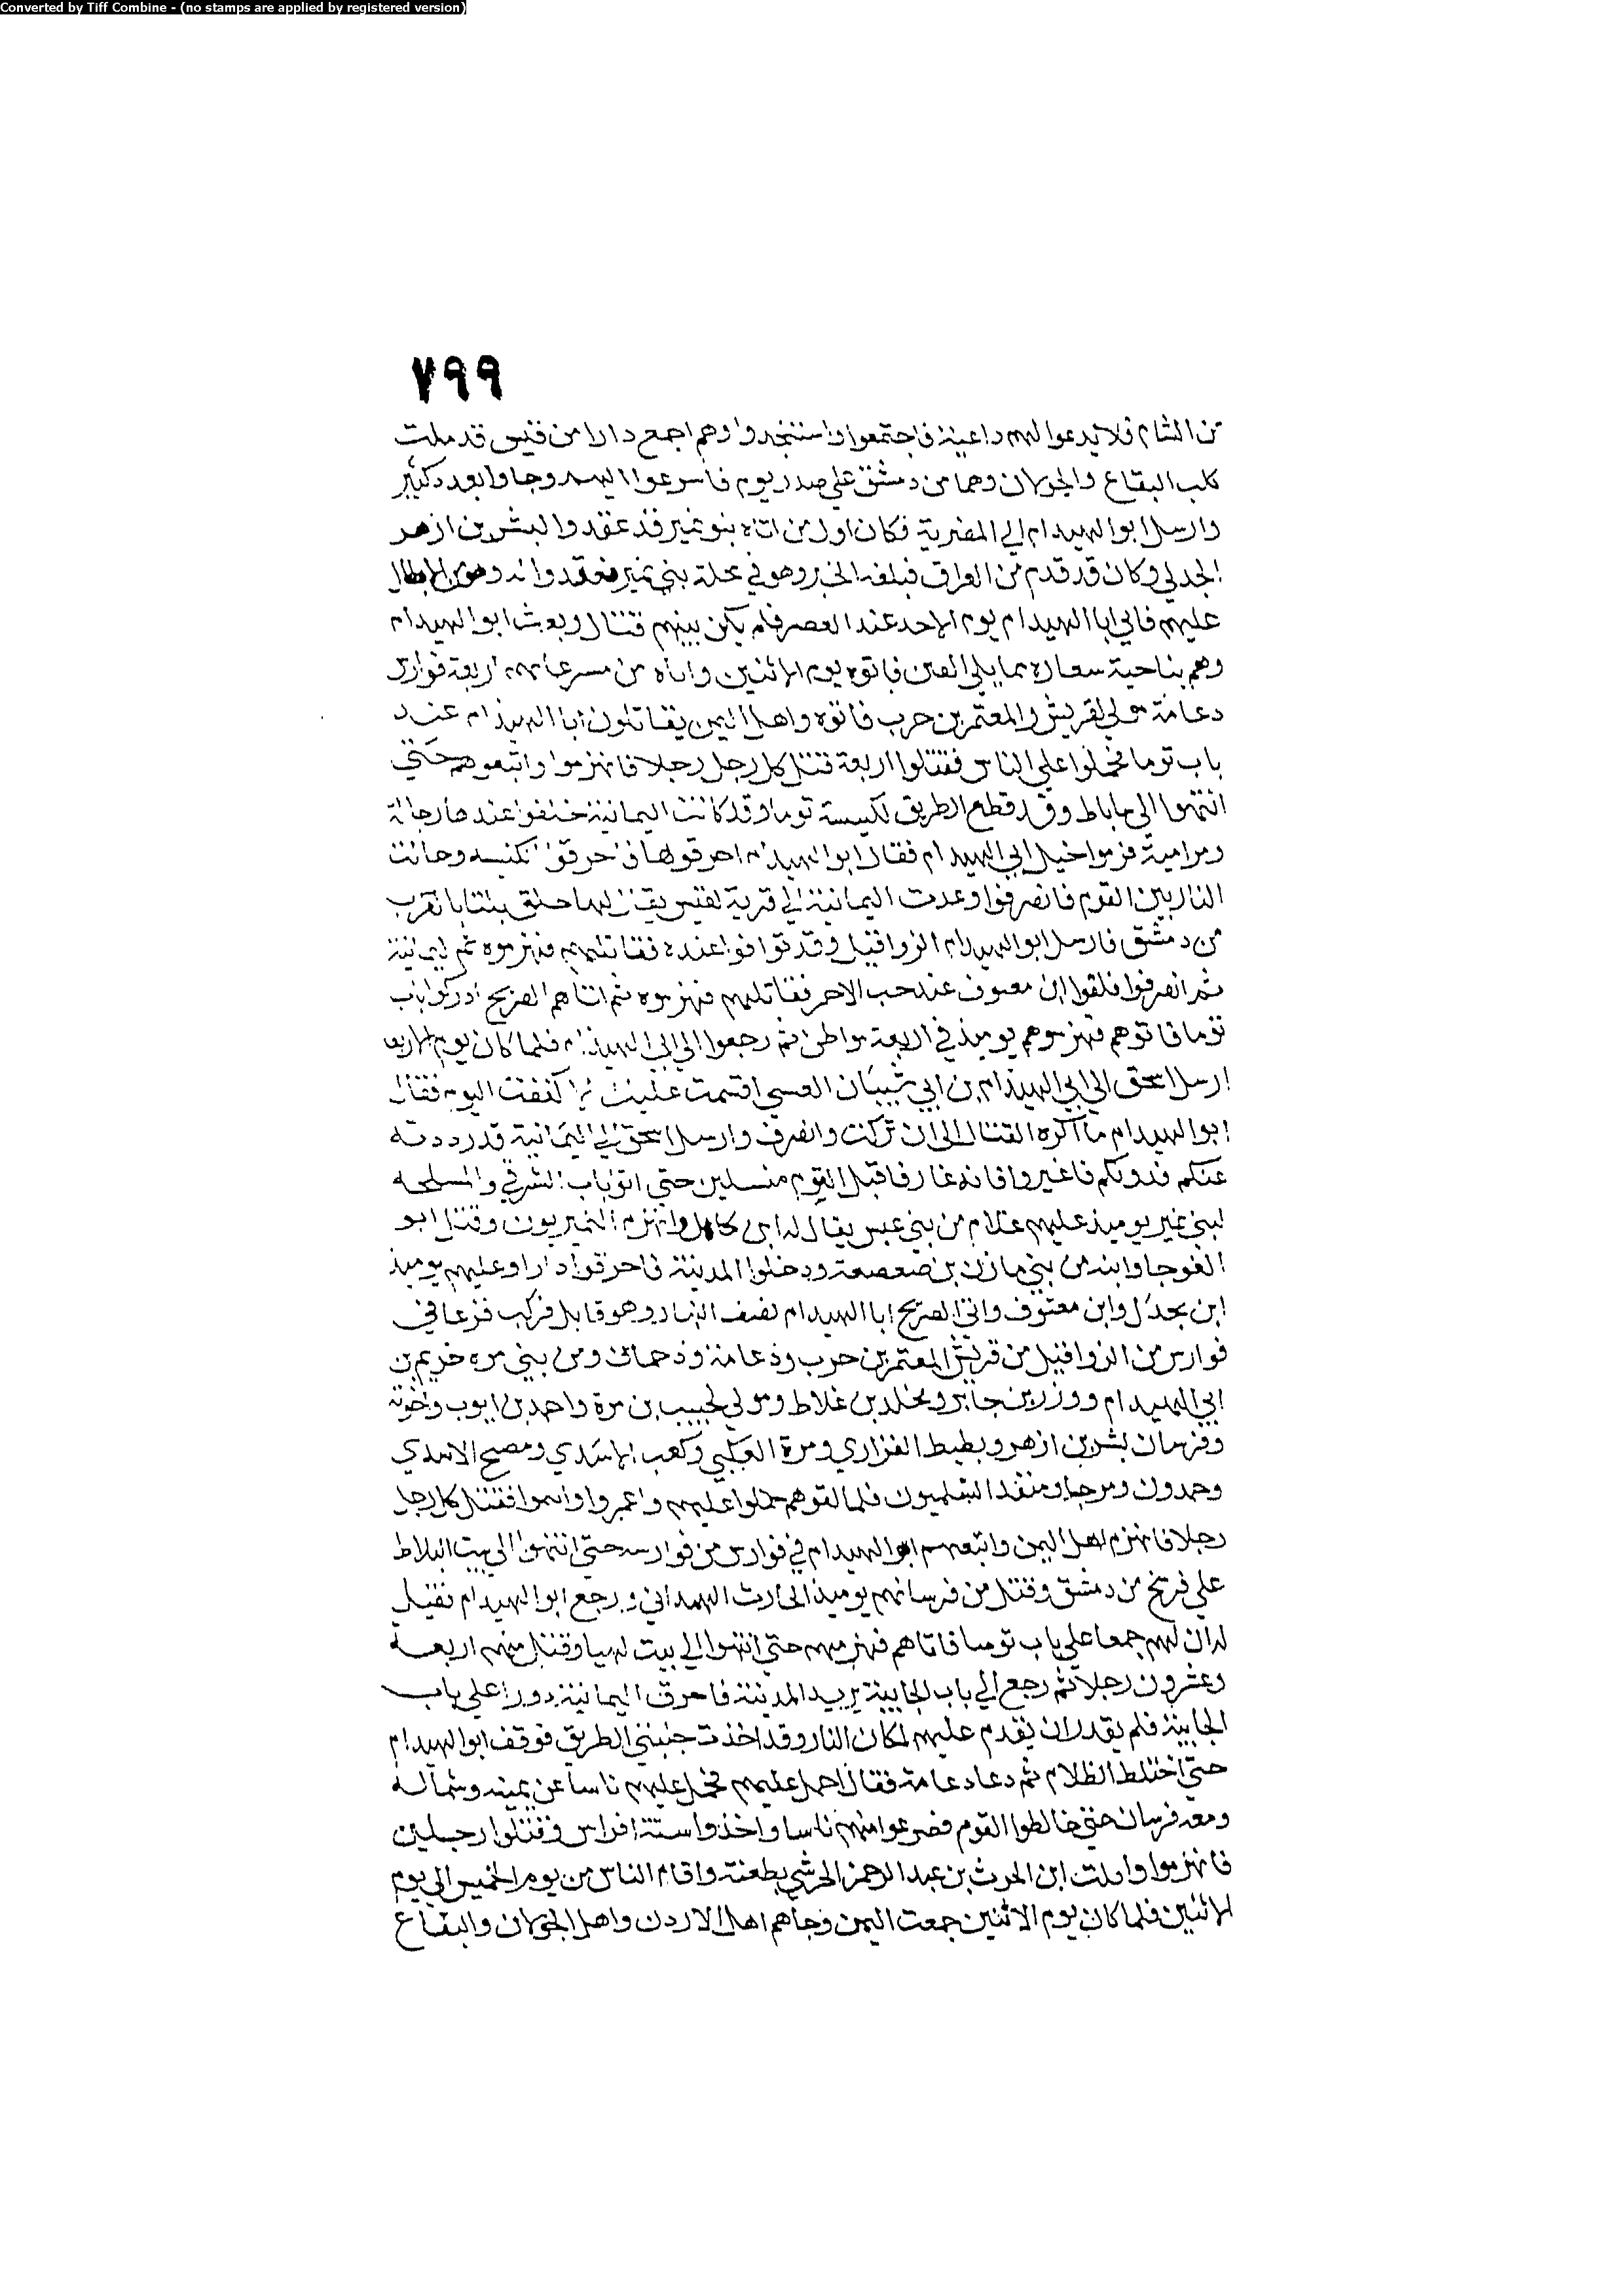 Converted by Tiff Combine - (no stamps are applied by registered version)
٧٩٩
من الشام فلا يدعوا لهم داعية فاجتمعوا واستنجدوا وهم اجمع دارا من قيس قد ملت
كلب البقاع والجولان وهما من دمشق علي صدر يوم فاسرعوا اليهم وجاوا بعدد كثير
وارسل ابو الهيدام الي المضرية فكان اول من اتاه بنو نمير قد عقدوا لبشر بن ازهر
الجدلي وكان قد قدم من العراق فبلغه الخبر وهو في محلة بني نمير فعقدوا له وهو
عليهم فاتي ابا الهيدام يوم الاحد عند العصر فلم يكن بينهم قتال وبعث ابو الهيدام
وهم بناحية يلي فاتوه يوم الاثنين واتاه من اربعة فوارس
دعامة مولي لقريش والمعتمر بن حرب فاتوه واهل اليمن يقاتلون ابا الهيذام عند
باب توما فحملوا علي الناس فقتلوا اربعة قتل كل رجل رجلا فانهزموا واتبعوهم حتي
انتهوا الي وقد قطع الطريق لكنيسة توما وقد كانت اليمانية خلفوا عندها رجالة
ومرامية فرموا خيل ابي الهيدام فقال ابو الهيدام احرقوها فاحرقوا الكنيسه وحالت
النار بين القوم فانصرفوا وعدت اليمانية الي قرية لقيس يقال لها بالقرب
من دمشق فارسل ابو الهيدام الزواقيل وقد توافوا عنده فقاتلهم فهزموه ثم اليمانية
ثم انصرفوا فلقوا ابن معيوف عند الاحمر فقاتلهم فهزموه ثم اتاهم الصريخ ادركوا باب
توما فاتوهم فهزموهم يوميذ في اربعة مواطن ثم رجعوا الي ابي الهيذام فلما كان يوم الاربعا
ارسل اسحق الي ابي الهيذام بن ابي شيبان العبسي اقسمت عليك كففت اليوم فقال
ابو الهيدام ما اكره القتال الي ان تركت وانصرف وارسل اسحق الي اليمانية قد رددته
عنكم فدونكم فاغيروا فانه غار فاقبل القوم حتي اتوا باب الشرقي والمسلحه
لبني نمير يوميذ عليهم غلام من بني عبس يقال له ابن كامل وانهزم النميريون وقتل ابو
العوجا وابنه من بني مازن بن صعصعة ودخلوا المدينة فاحرقوا دارا وعليهم يوميذ
ابن بحدل وابن معيوف واتي الصريخ ابا الهيدام نصف النهار وهو قايل فركب فزعا في
فوارس من الزواقيل من قريش المعتمر بن حرب ودعامة ودحمان ومن بني مره خريم بن
ابي الهيدام ووزر بن جابر ومخلد بن غلاط ومولي لحبيب بن مرة واحمد بن ايوب واخوته
وفرسان بشر بن ازهر وبطيط الفزاري ومرة العكبي وكعب الاسدي ومصبح الاسدي
وحمدون ومرجا ومنقذ السلميون فلما لقوهم حملوا عليهم فقتل كل رجل
رجلا فانهزم اهل اليمن واتبعهم ابو الهيدام في فوارس من فوارسه حتي انتهوا الي بيت البلاط
علي فرسخ من دمشق وقتل من فرسانهم يوميذ الحارث الهمداني ورجع ابو الهيدام فقيل
له ان لهم جمعا علي باب توما فاتاهم فهزمهم حتي انتهوا الي بيت لهيا وقتل منهم اربعة
وعشرون رجلا ثم رجع الي باب الجابية يريد المدينة فاحرق اليمانية دورا علي باب
الجابية فلم يقدر ان يقدم عليهم لمكان النار وقد اخذت جنبتي الطريق فوقف ابو الهيدام
حتي اختلط الظلام ثم دعا دعامة فقال احمل عليهم فحمل عليهم ناسا عن يمينه وشماله
ومعه فرسان حتي خالطوا القوم فصرعوا منهم ناسا واخذوا ستة افراس وقتلوا رجلين
فانهزموا وافلت ابن الحرث بن عبد الرحمن الحرشي بطعنة واقام الناس من يوم الخميس الي يوم
الاثنين فلما كان يوم الاثنين جمعت اليمن وجاهم اهل الاردن واهل الجولان والبقاع